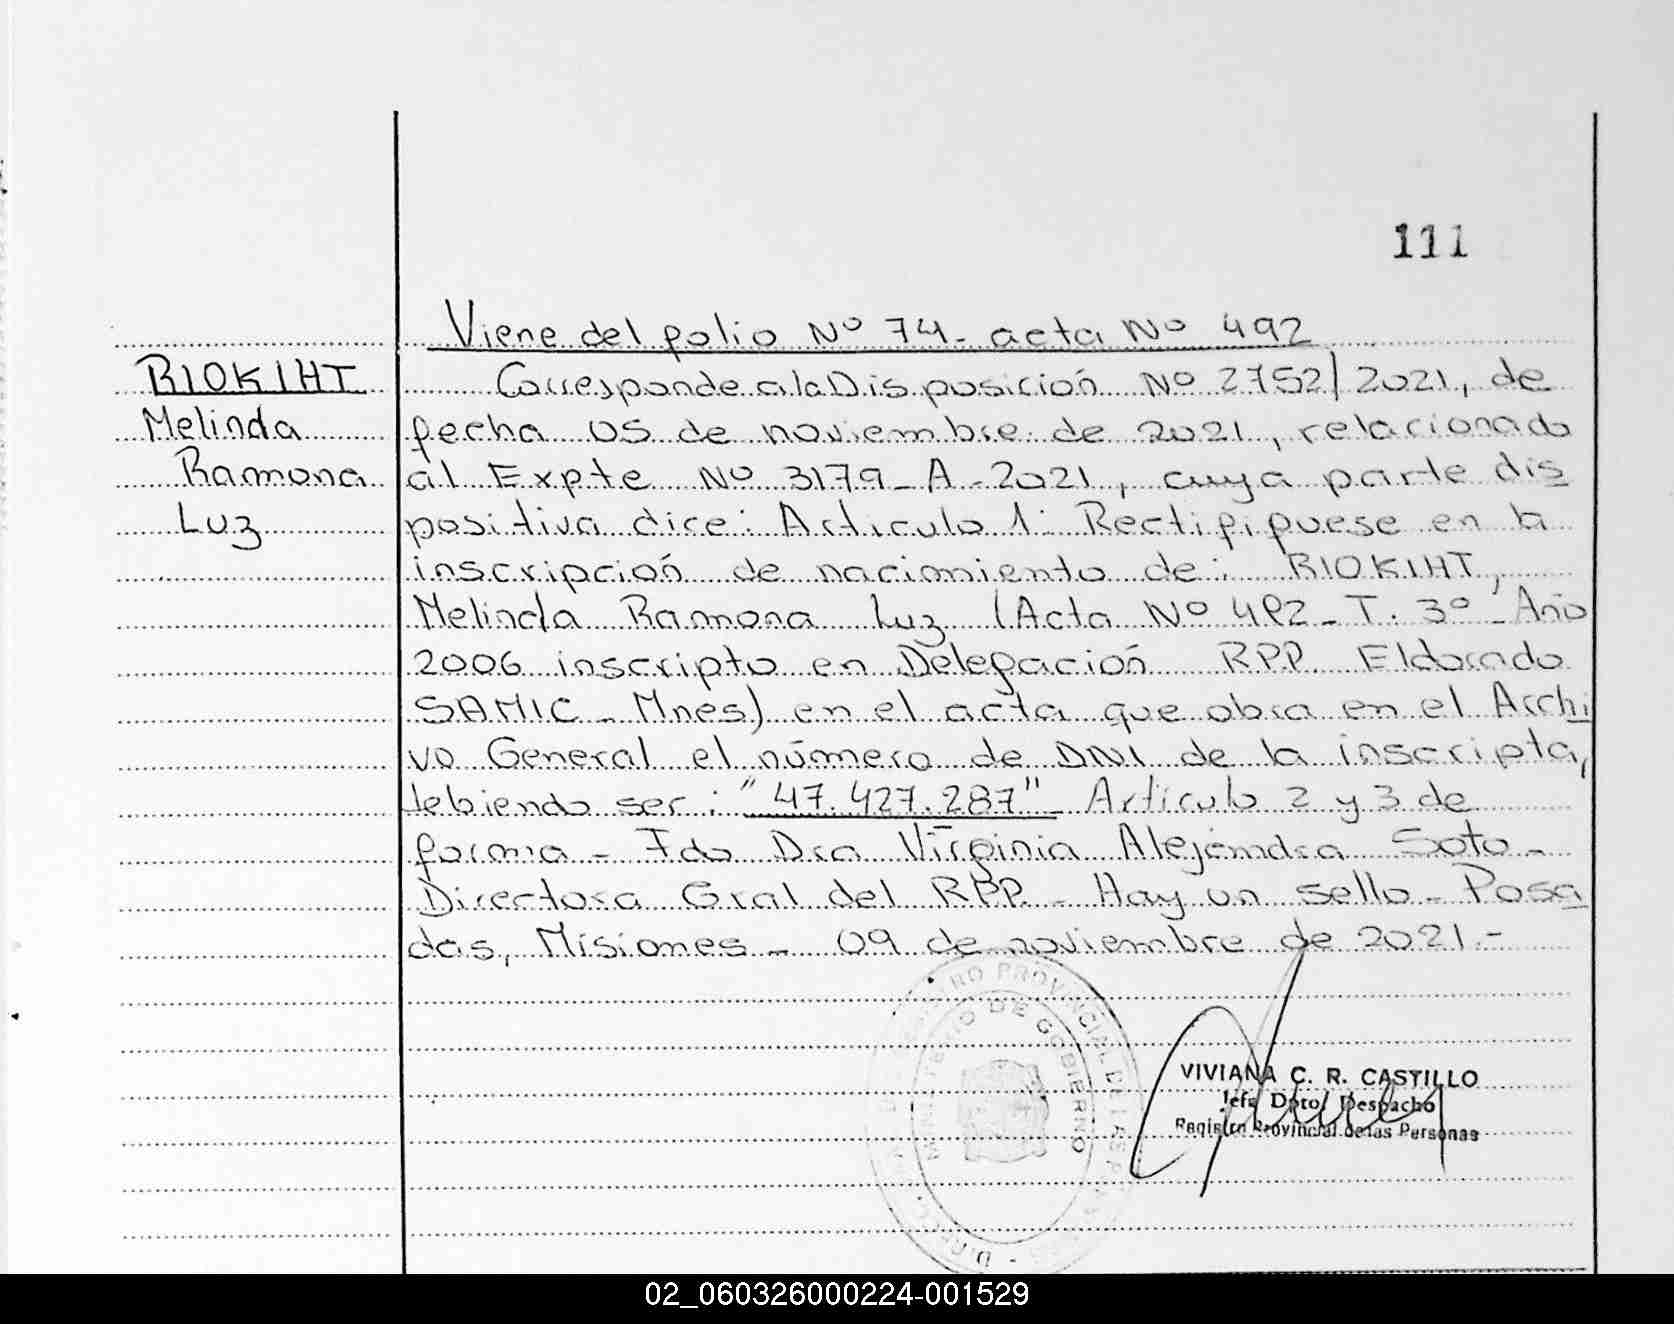 111
Viene del folio Nº 74- acta Nº 492
RIOKIHT
Corresponde a la Disposición Nº 2752/2021, de
Melinda
fecha 05 de noviembre de 2021, relacionado
Ramona
al Expte Nº 3179-A-2021, cuya parte dis
Luz
positiva dice: Articulo 1: Rectifiquese en la
inscripción de nacimiento de: RIOKIHT,
Melinda Ramona Luz (Acta Nº 492- T. 3º- Año
2006 inscripto en Delegación RPP Eldorado
SAMIC - Mnes) en el acta que obra en el Archi
vo General el número de DNI de la inscripta,
debiendo ser: "47.427.287"- Articulo 2 y 3 de
forma - Fdo Dra Virginia Alejandra Soto-
Directora Gral del RPP- Hay un sello- Posa
das, Misiones- 09 de noviembre de 2021.-
PROVINCIAL DE LAS PERSONAS
MINISTERIO DE GOBIERNO
VIVIANA C. R. CASTILLO
Jefa Dpto Despacho
Registro Provincial de las Personas
02_060326000224-001529